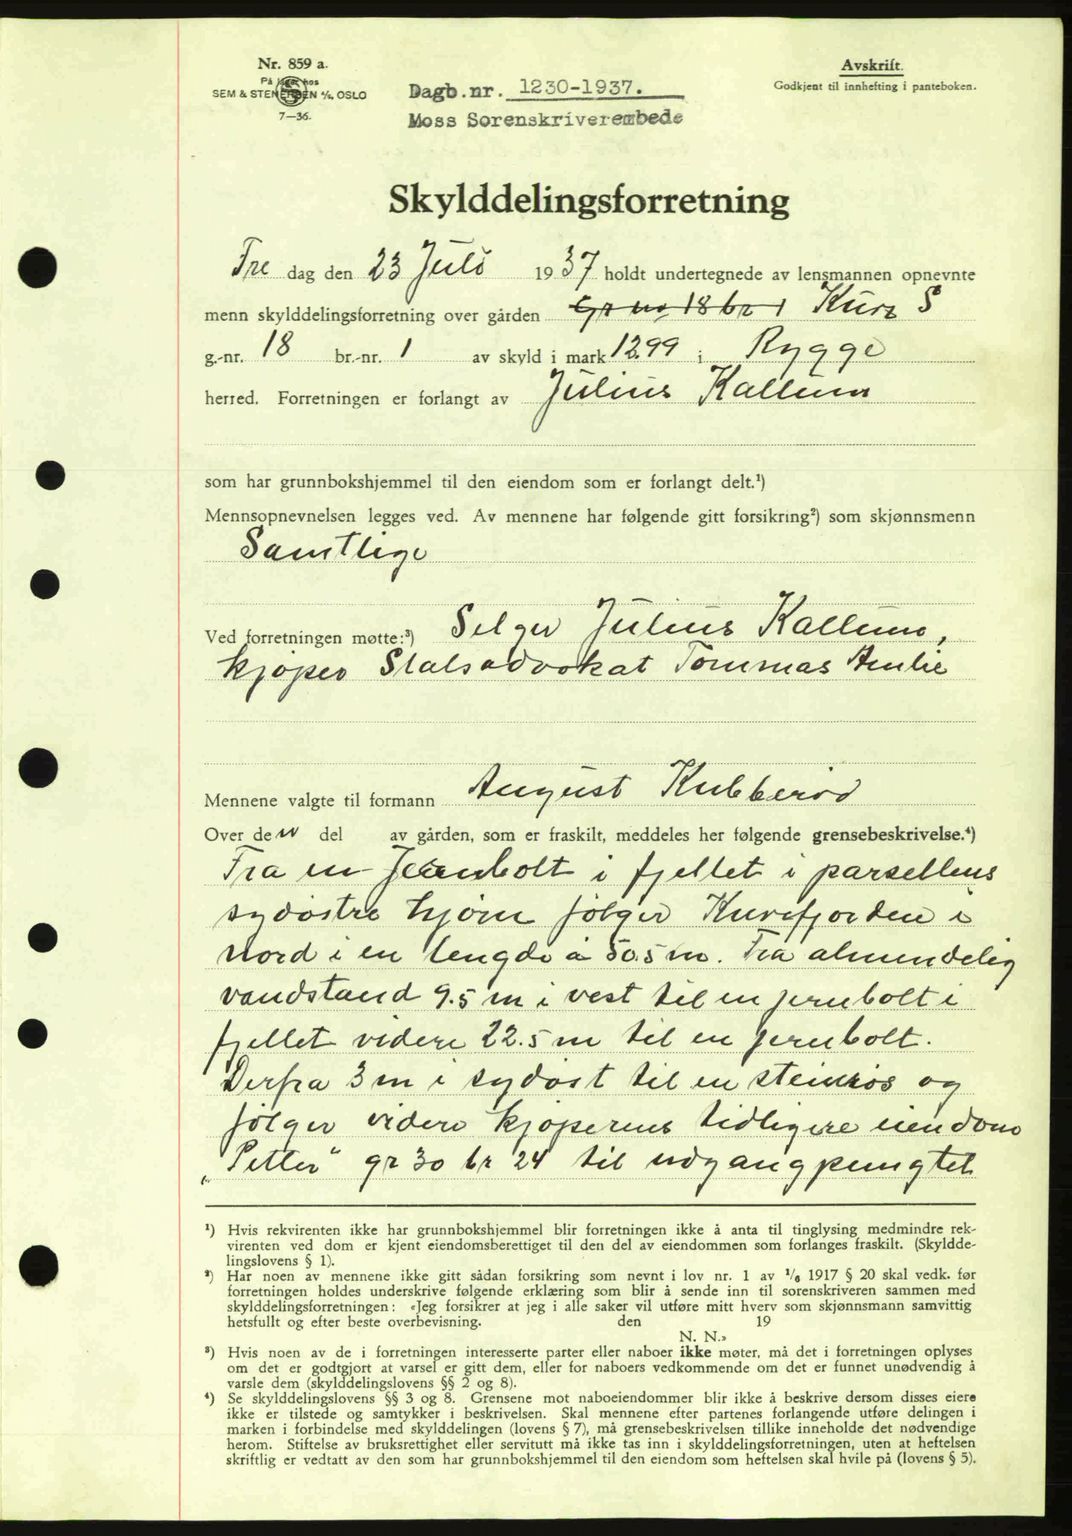 Nr. 859 a.
På lager hos
SEM & STENERSEN A/S, OSLO
7—36.
Dagb.nr. 1230-1937.
Moss Sorenskriverembede
Avskrift.
Godkjent til innhefting i panteboken.
Skylddelingsforretning
Fre dag den 23 Juli 1937 holdt undertegnede av lensmannen opnevnte
menn skylddelingsforretning over gården Gr no 18 br 1 Kurø S
g.-nr. 18 br.-nr. 1 av skyld i mark 12.99 i Rygge
herred. Forretningen er forlangt av Julius Kallum
som har grunnbokshjemmel til den eiendom som er forlangt delt.¹)
Mennsopnevnelsen legges ved. Av mennene har følgende gitt forsikring²) som skjønnsmenn
Samtlige
Ved forretningen møtte:³) Selger Julius Kallum,
kjøper Statsadvokat Tommas Amlie
Mennene valgte til formann August Kubberød
Over den del av gården, som er fraskilt, meddeles her følgende grensebeskrivelse.⁴)
Fra en Jernbolt i fjellet i parsellens
sydøstre hjørn følger Kurefjorden i
Nord i en lengde å 50.5 m. Fra almindelig
vandstand 9.5 m i vest til en jernbolt i
fjellet videre 22.5 m til en jernbolt.
Derfra 3 m i sydøst til en steinrøs og
følger videre kjøperens tidligere eiendom
„Petter" gr 30 br 24 til udgangpungtet
¹) Hvis rekvirenten ikke har grunnbokshjemmel blir forretningen ikke å anta til tinglysing medmindre rek-
virenten ved dom er kjent eiendomsberettiget til den del av eiendommen som forlanges fraskilt. (Skyldde-
lingslovens § 1).
²) Har noen av mennene ikke gitt sådan forsikring som nevnt i lov nr. 1 av ¹/₆ 1917 § 20 skal vedk. før
forretningen holdes underskrive følgende erklæring som blir å sende inn til sorenskriveren sammen med
skylddelingsforretningen: «Jeg forsikrer at jeg i alle saker vil utføre mitt hverv som skjønnsmann samvittig
hetsfullt og efter beste overbevisning. den 19
N. N.»
³) Hvis noen av de i forretningen interesserte parter eller naboer ikke møter, må det i forretningen oplyses
om det er godtgjort at varsel er gitt dem, eller for naboers vedkommende om det er funnet unødvendig å
varsle dem (skylddelingslovens §§ 2 og 8).
⁴) Se skylddelingslovens §§ 3 og 8. Grensene mot naboeiendommer blir ikke å beskrive dersom disses eiere
ikke er tilstede og samtykker i beskrivelsen. Skal mennene efter partenes forlangende utføre delingen i
marken i forbindelse med skylddelingen (lovens § 7), må grensebeskrivelsen tillike inneholde det nødvendige
herom. Stiftelse av bruksrettighet eller servitutt må ikke tas inn i skylddelingsforretningen, uten at heftelsen
skriftlig er vedtatt av den som har grunnbokshjemmel til den eiendom som heftelsen skal hvile på (lovens § 5).